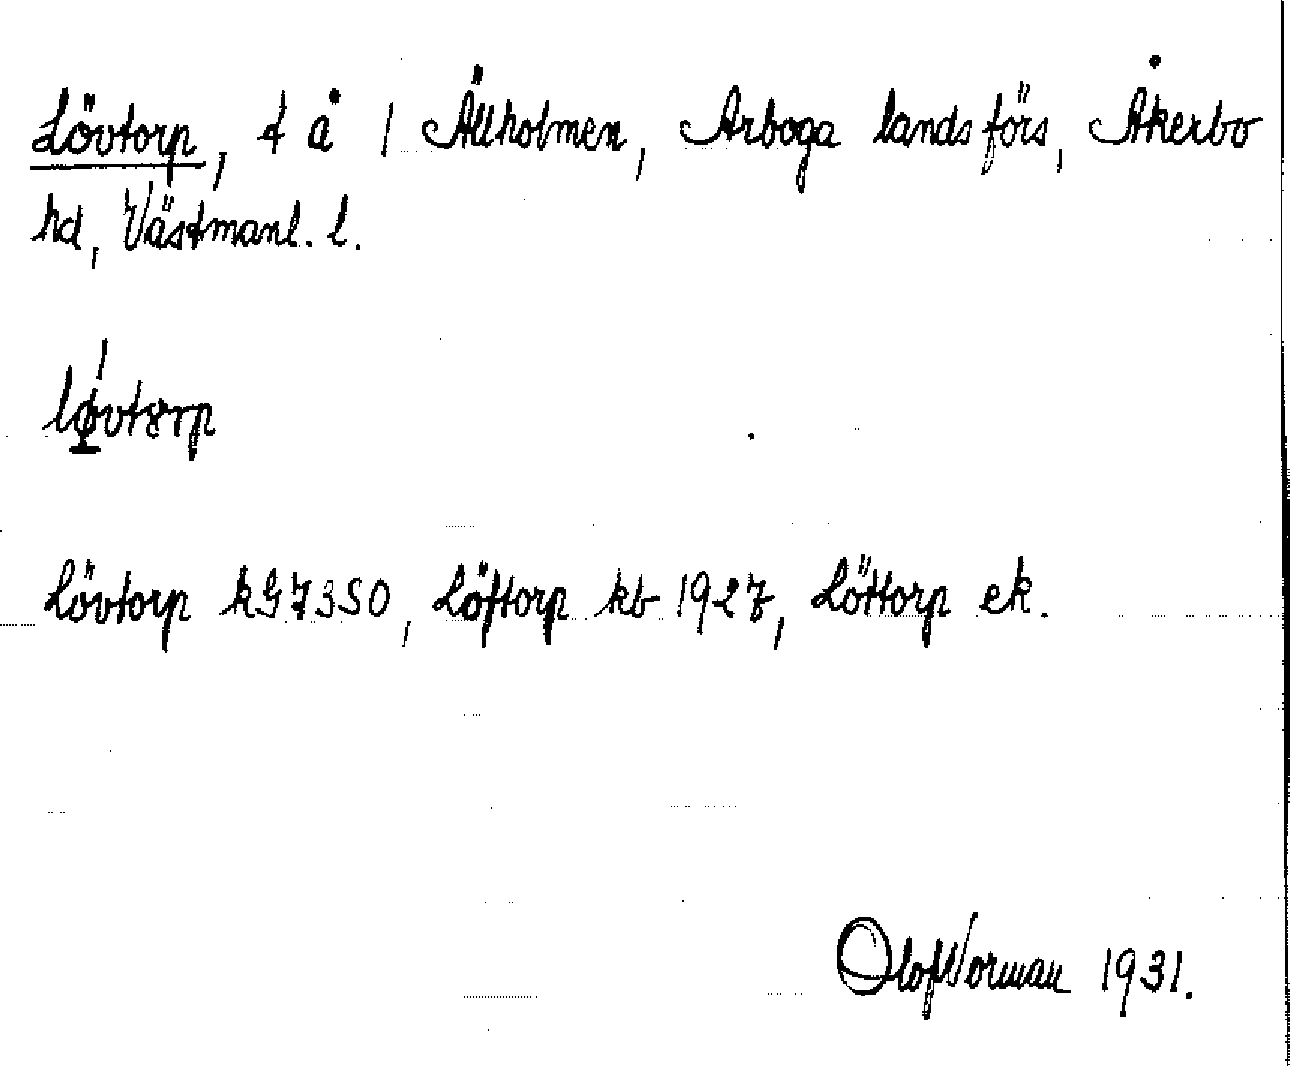 Lövtorp, t å 1 Ällholmen, Arboga landsförs, Åkerbo
hd, Västmanl. l.
Lövtorp kG7350, Löftorp kb 1927, Löttorp ek.
Olof Norman 1931.